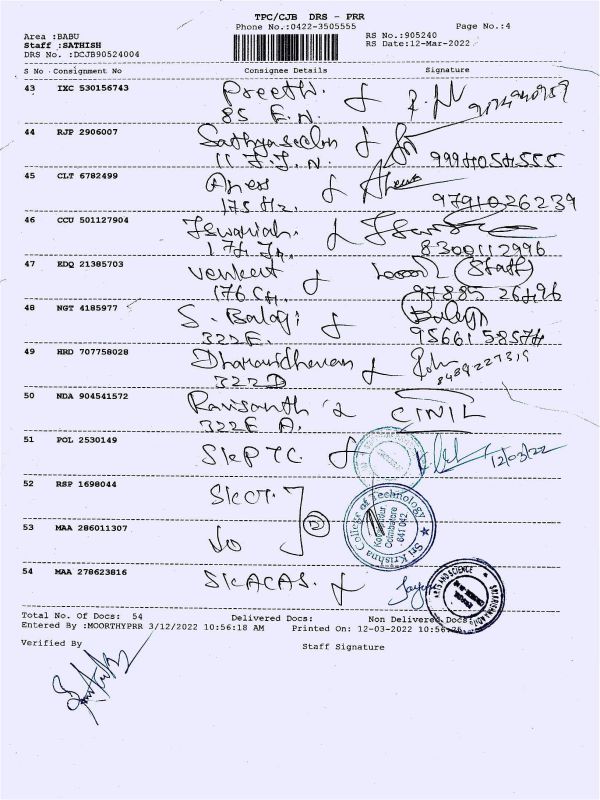 TPC/CJB DRS - PRR
Phone No.:0422-3505555 Page No.:4
Area :BABU RS No.:905240
Staff :SATHISH RS Date:12-Mar-2022
DRS No. :DCJB90524004
S No Consignment No Consignee Details Signature
43 IXC 530156743 Preethi.
85 E.N
44 RJP 2906007 Sathyaseelan
11 J.J.N. 9994054555
45 CLT 6782499
175 Hz. 9791026239
46 CCU 501127904 Iswariah.
174 8300112996
47 EDQ 21385703 Venkat (Staff)
176 CH. 97885 26496
48 NGT 4185977 S. Balaji Balaji
322E. 95661 58574
49 HRD 707758028
322D 8489227319
50 NDA 904541572 CINIL
322E A.
51 POL 2530149 SKPTC. 12/03/22
52 RSP 1698044 SKCT. 2
53 MAA 286011307 do
Sri Krishna College of Technology
Kovaipudur
Coimbatore
641 042
54 MAA 278623816 SKACAS.
ARTS AND SCIENCE
Total No. Of Docs: 54 Delivered Docs: Non Delivered Docs:
Entered By :MOORTHYPRR 3/12/2022 10:56:18 AM Printed On: 12-03-2022 10:56:26
Verified By Staff Signature